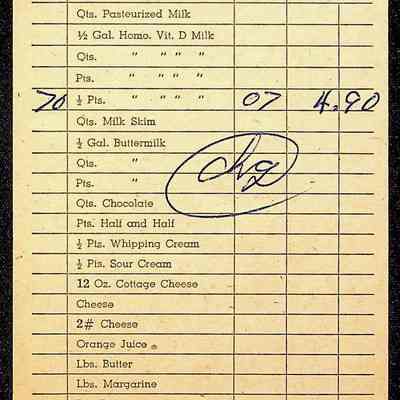 Qts. Pasteurized Milk
½ Gal. Homo. Vit. D Milk
Qts. " " " "
Pts. " " " "
70 ½ Pts. " " " " 07 4.90
Qts. Milk Skim
½ Gal. Buttermilk
Qts. "
Pts. "
chg
Qts. Chocolate
Pts. Half and Half
½ Pts. Whipping Cream
½ Pts. Sour Cream
12 Oz. Cottage Cheese
Cheese
2# Cheese
Orange Juice
Lbs. Butter
Lbs. Margarine